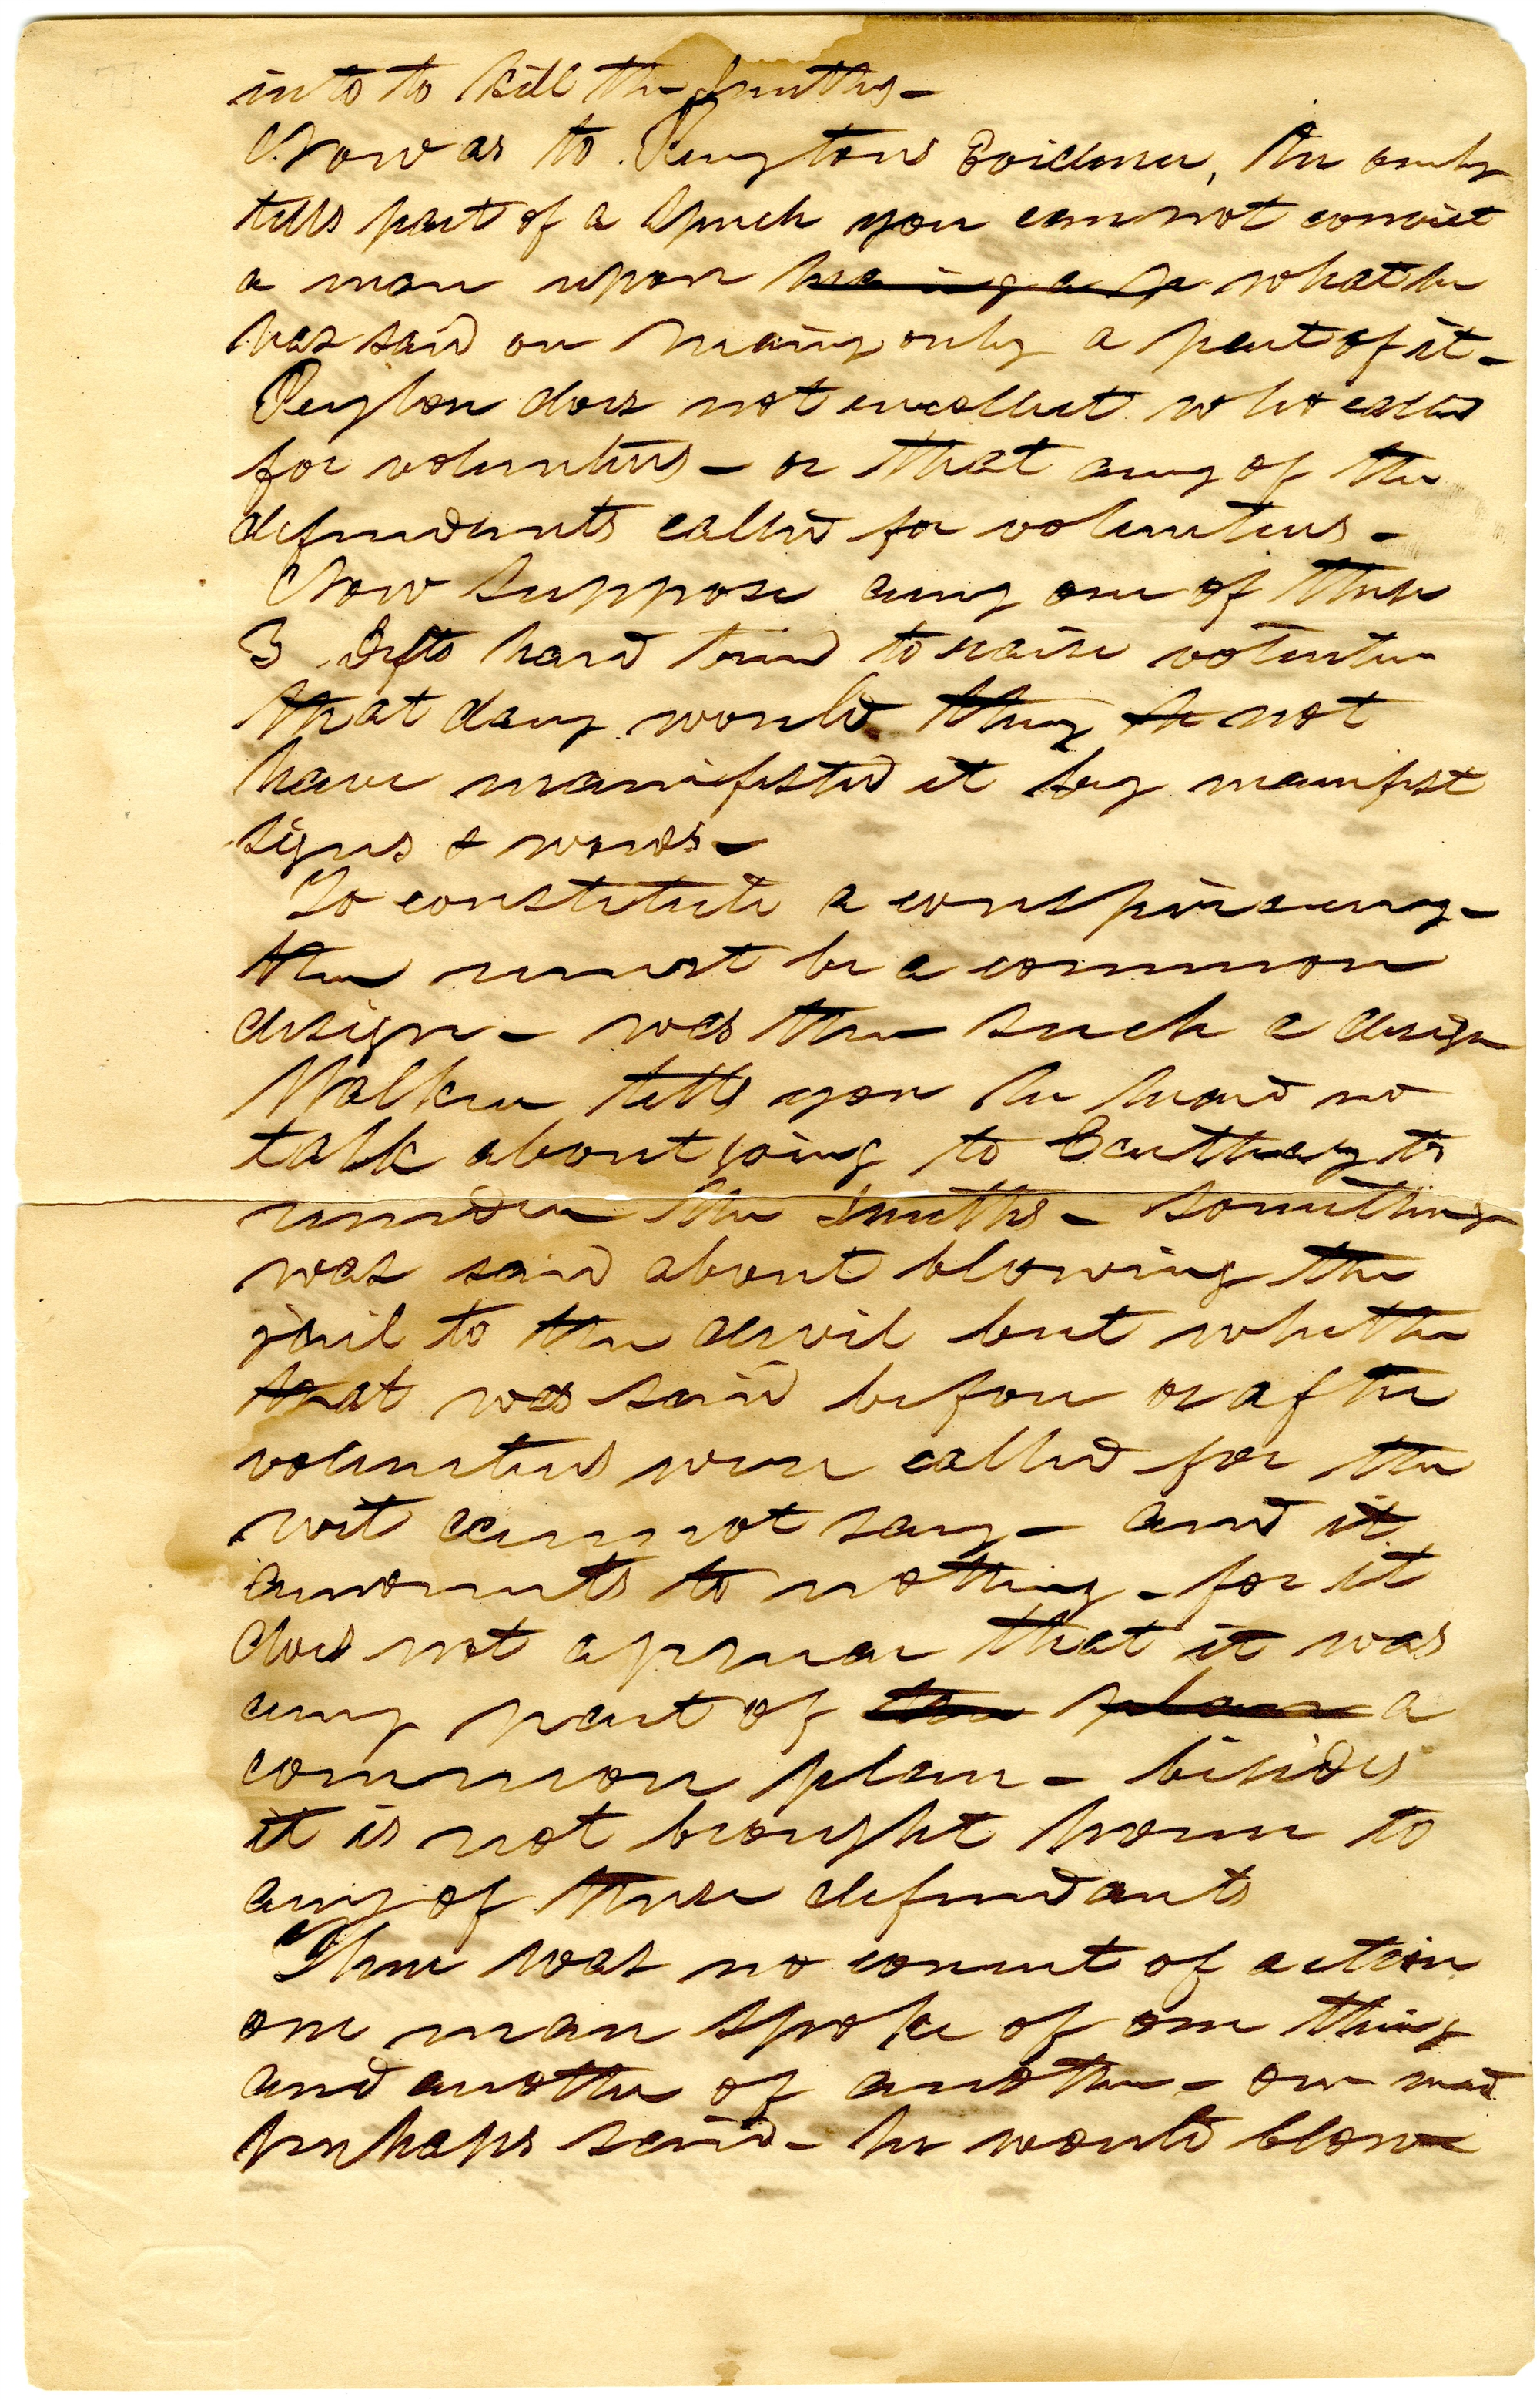 into to kill the Smiths –
Now as to Peytons Evidence, he only
tells part of a speech you can not convict
a man upon ~~hearing a sp~~ what he
has said on hearing only a part of it –
Peyton does not recollect who called
for volunteers – or that any of the
defendants called for volunteers –
Now suppose any one of these
3 Defts had tried to raise
that day would they ~~h~~ not
have manifested it by manifest
signs & words –
To constitute a conspiracy –
there must be a common
design – was there such a design
Walker tells you he heard no
talk about going to Carthage to
murder the Smiths – something
was said about blowing the
jail to the devil but whether
that was said before or after
volunteers were called for the
wit cannot say – and it
amounts to nothing – for it
does not appear that it was
any part of ~~the plan~~ a
common plan – besides
it is not brought home to
any of these defendants
There was no concert of action
one man spoke of one thing
and another of another – one man
perhaps said – he would blow